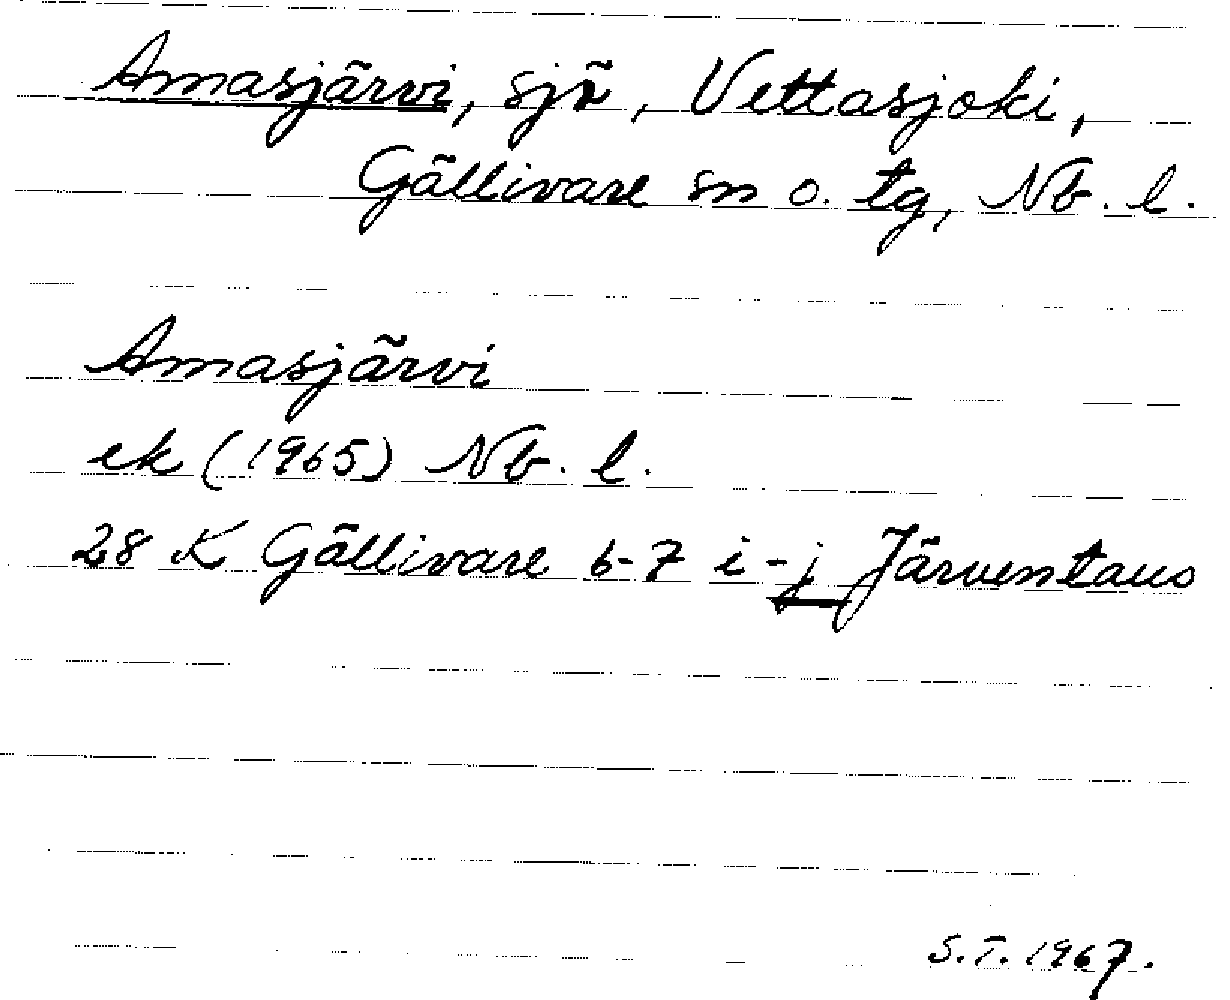 Amasjärvi, sjö, Vettasjoki,
Gällivare sn o. tg, Nb. l.
Amasjärvi
ek (1965) Nb. l.
28 K Gällivare 6-7 i-j Järventaus
S.T. 1967.